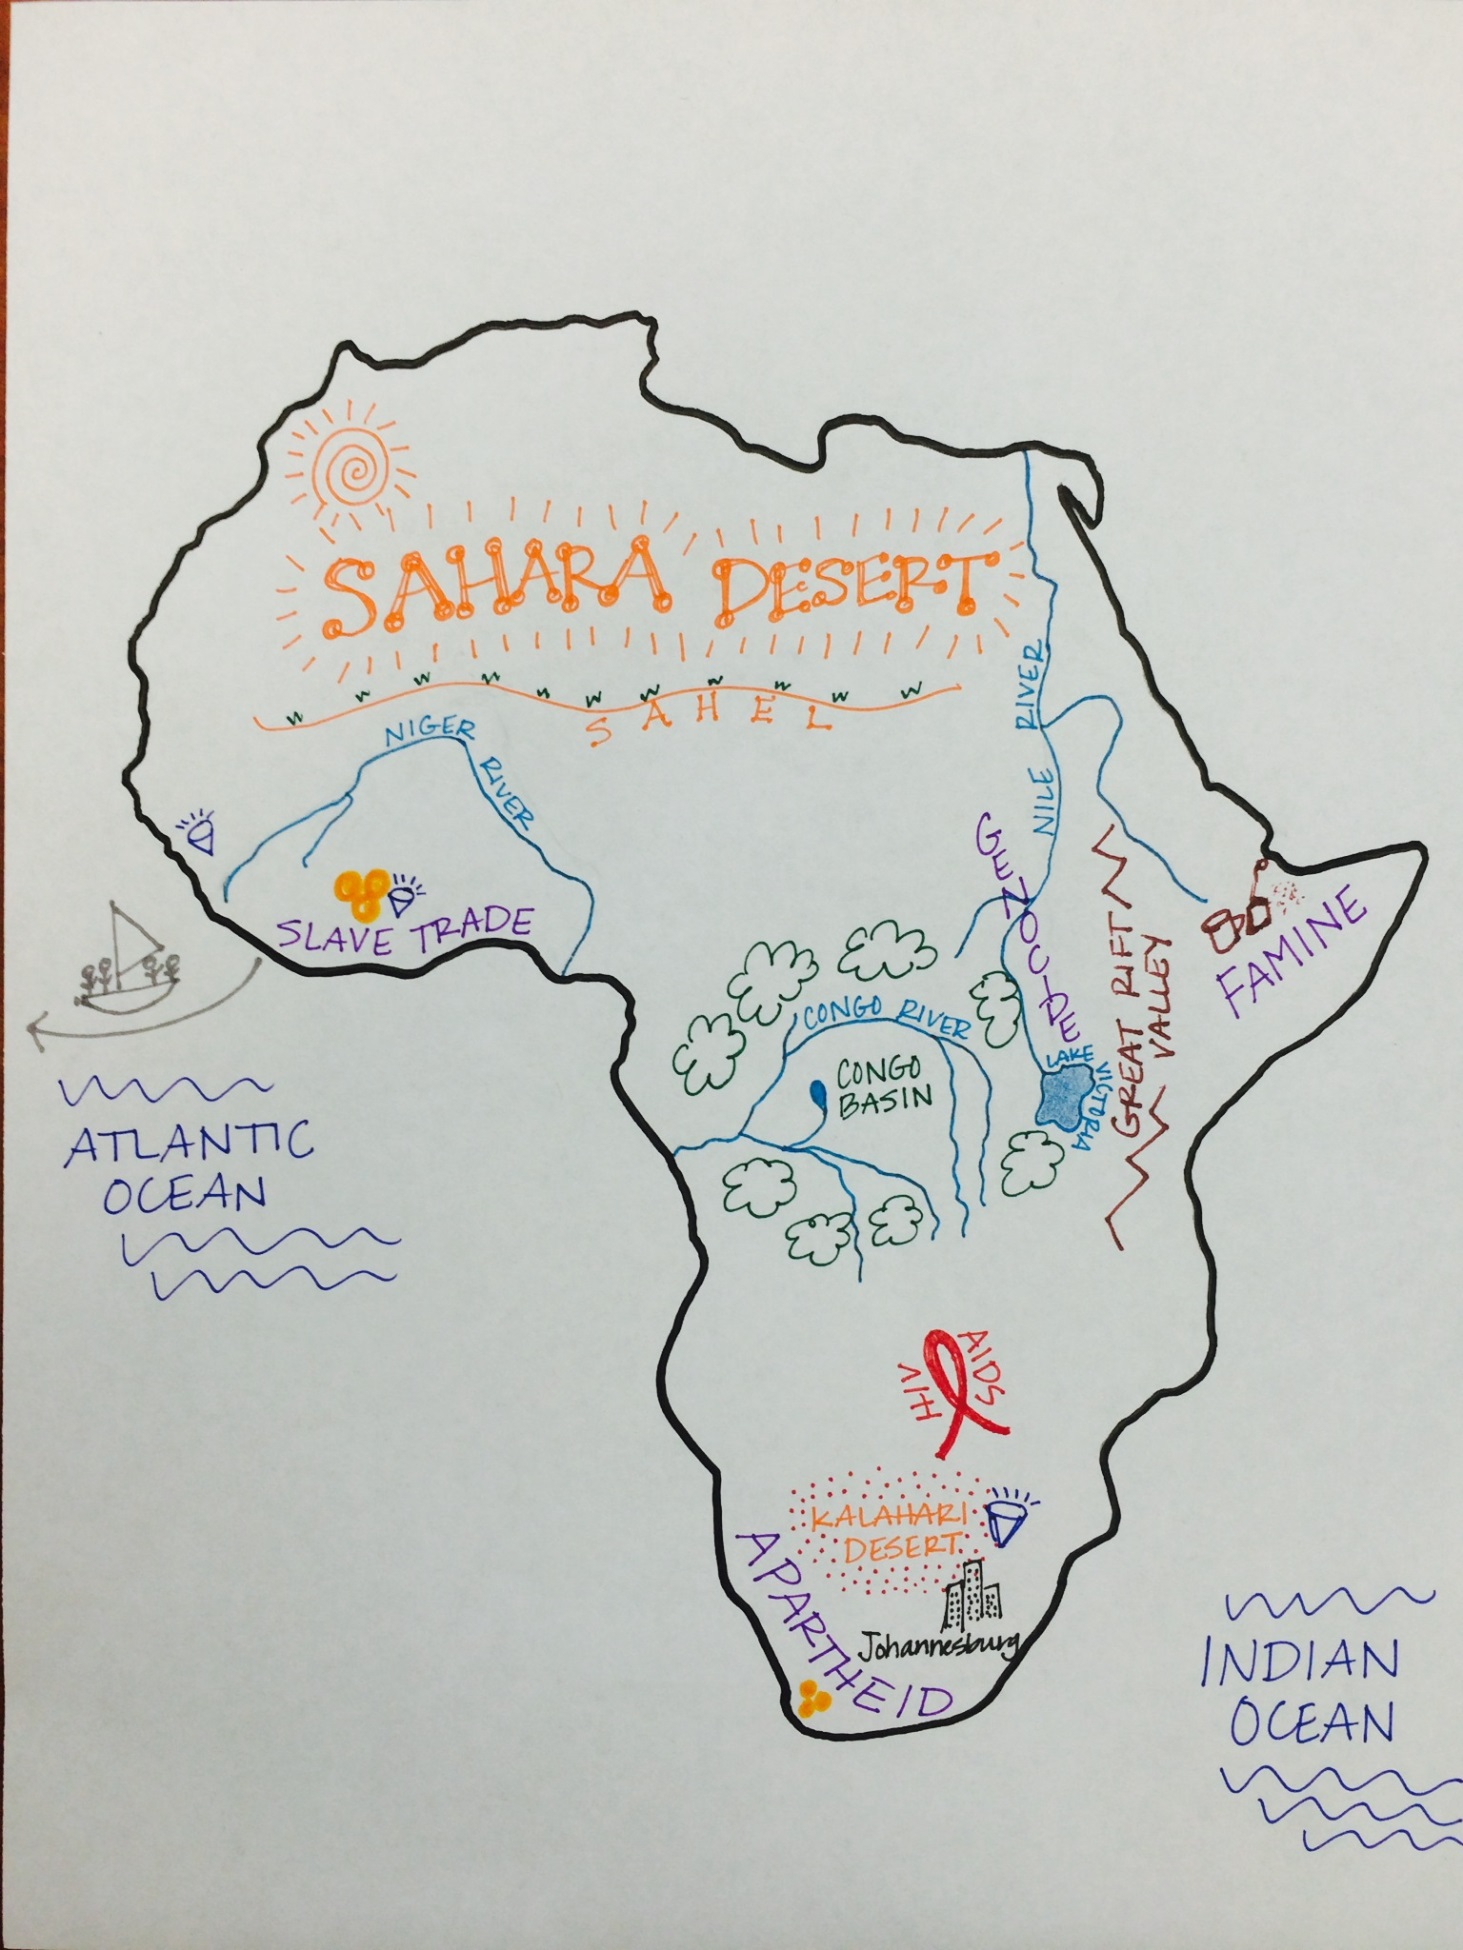 SAHARA DESERT
SAHEL
NIGER RIVER
NILE RIVER
GENOCIDE
SLAVE TRADE
FAMINE
GREAT RIFT
VALLEY
CONGO RIVER
CONGO
BASIN
LAKE
VICTORIA
ATLANTIC
OCEAN
HIV
AIDS
KALAHARI
DESERT
APARTHEID
Johannesburg
INDIAN
OCEAN